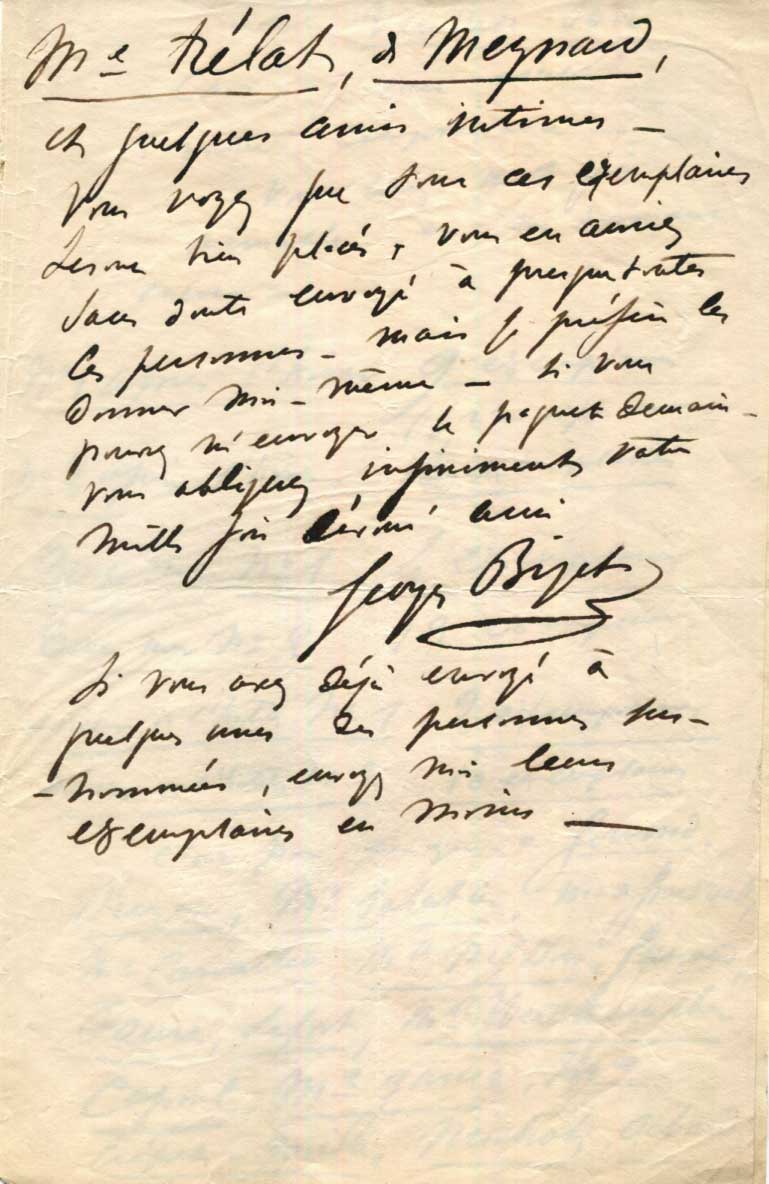 Me Trélat, de Meynard,
et quelques amis intimes —
vous voyez que tous ces exemplaires
seront bien placés, vous en auriez
sans doute envoyé à presque toutes
ces personnes — mais je préfère les
donner moi-même — si vous
pouvez m'envoyer le paquet demain —
vous obligerez infiniment votre
mille fois dévoué ami
Georges Bizet
Si vous avez déjà envoyé à
quelques unes des personnes sus-
-nommées, envoyez moi leurs
exemplaires en moins —